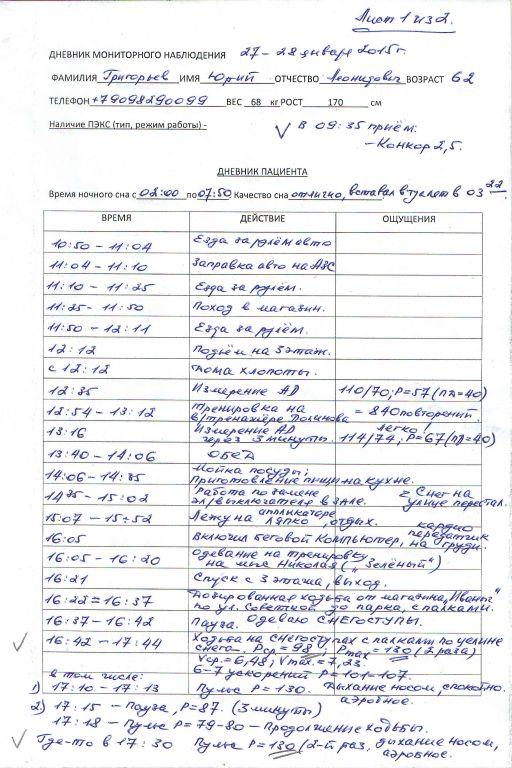 Лист 1 из 2.
ДНЕВНИК МОНИТОРНОГО НАБЛЮДЕНИЯ 27-28 января 2015г.
ФАМИЛИЯ Григорьев ИМЯ Юрий ОТЧЕСТВО Леонидович ВОЗРАСТ 62
ТЕЛЕФОН +79098290099 ВЕС 68 кг РОСТ 170 см
Наличие ПЭКС (тип, режим работы) - V В 09:35 приём.
- Конкор 2,5.
ДНЕВНИК ПАЦИЕНТА
Время ночного сна с 02:00 по 07:50 Качество сна отлично, вставал в туалет в 03 22.
ВРЕМЯ ДЕЙСТВИЕ ОЩУЩЕНИЯ
10:50 - 11:04 Езда за рулём авто
11:04 - 11:10 Заправка авто на АЗС
11:10 - 11:25 Езда за рулём.
11:25 - 11:50 Поход в магазин.
11:50 - 12:11 Езда за рулём.
12:12 Подъём на 3 этаж.
с 12:12 Дома хлопоты.
12:35 Измерение АД 110/70; P=57 (ПД=40)
12:54 - 13:12 Тренировка на = 840 повторений.
в/тренажёре Долинова легко!
13:16 Измерение АД
через 3 минуты. 114/74; P=67 (ПД=40)
13:40 - 14:06 ОБЕД
14:06 - 14:35 Мойка посуды;
Приготовление пищи на кухне.
14 35 - 15:02 Работа по замене = Снег на
эл/выключателя в зале. улице перестал.
15:07 - 15:52 Лежу на аппликаторе
Ляпко, отдых. кардио
16:05 Включил беговой компьютер, передатчик на груди.
16:05 - 16:20 Одевание на тренировку
на м-не Николая ("Зелёный")
16:21 Спуск с 3 этажа, выход.
16:22 = 16:37 Дозированная ходьба от магазина "Иваныч"
по ул. Советной до парка, с палками.
16:37 - 16:42 Пауза. Одеваю СНЕГОСТУПЫ.
V 16:42 - 17:44 Ходьба на снегоступах с палками по целине
снега. Pср = 98; Pmax = 130 (2 раза)
Vср. = 6,48; Vmax. = 7,23.
6-7 ускорений P = 101-107.
в том числе:
1) 17:10 - 17:13 Пульс P = 130. Дыхание носом, спокойно.
аэробное.
2) 17:15 - Пауза, P = 87. (3 минуты)
17:18 - Пульс P = 79-80 - Продолжение ходьбы.
V Где-то в 17:30 Пульс P = 130 (2-й раз, дыхание носом,
аэробное.